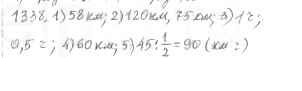 1338. 1) 58 км; 2) 120 км, 75 км; 3) 1 ч;
0,5 ч; 4) 60 км; 5) 45 : 1/2 = 90 (км :)